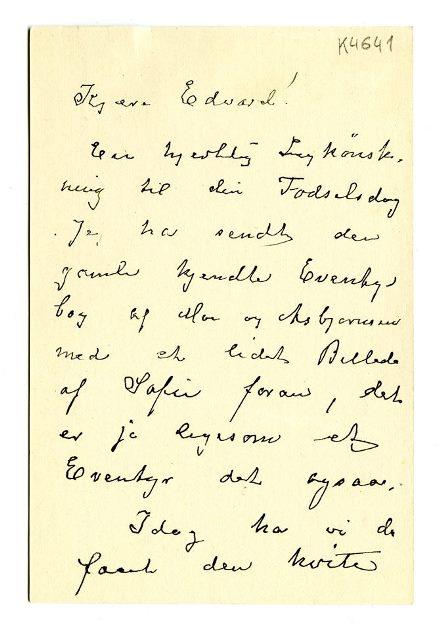 K4641
Kjære Edvard!
En hjertelig Lykönsk-
ning til din Födselsdag
Jeg har sendt den
gamle kjendte Eventyr
bog af Moe og Asbjørnsen
med et lidet Billede
af Sofie foran, det
er jo ligesom et
Eventyr det ogsaa.
Idag har vi da
faaet den hvite